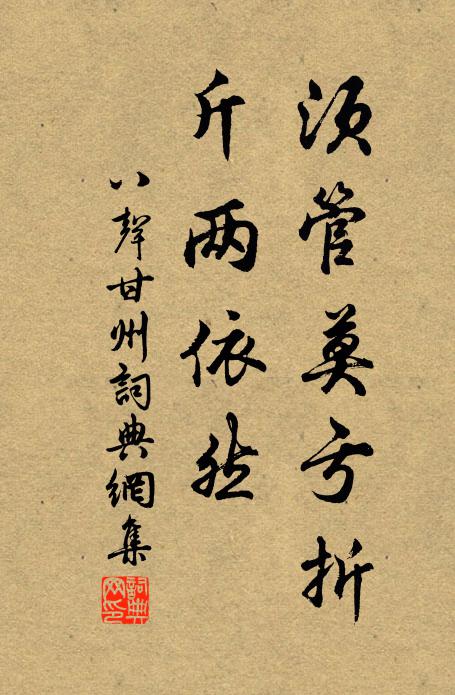 须管莫亏折
斤两依然
八聲甘州詞典網集
詞典
网印